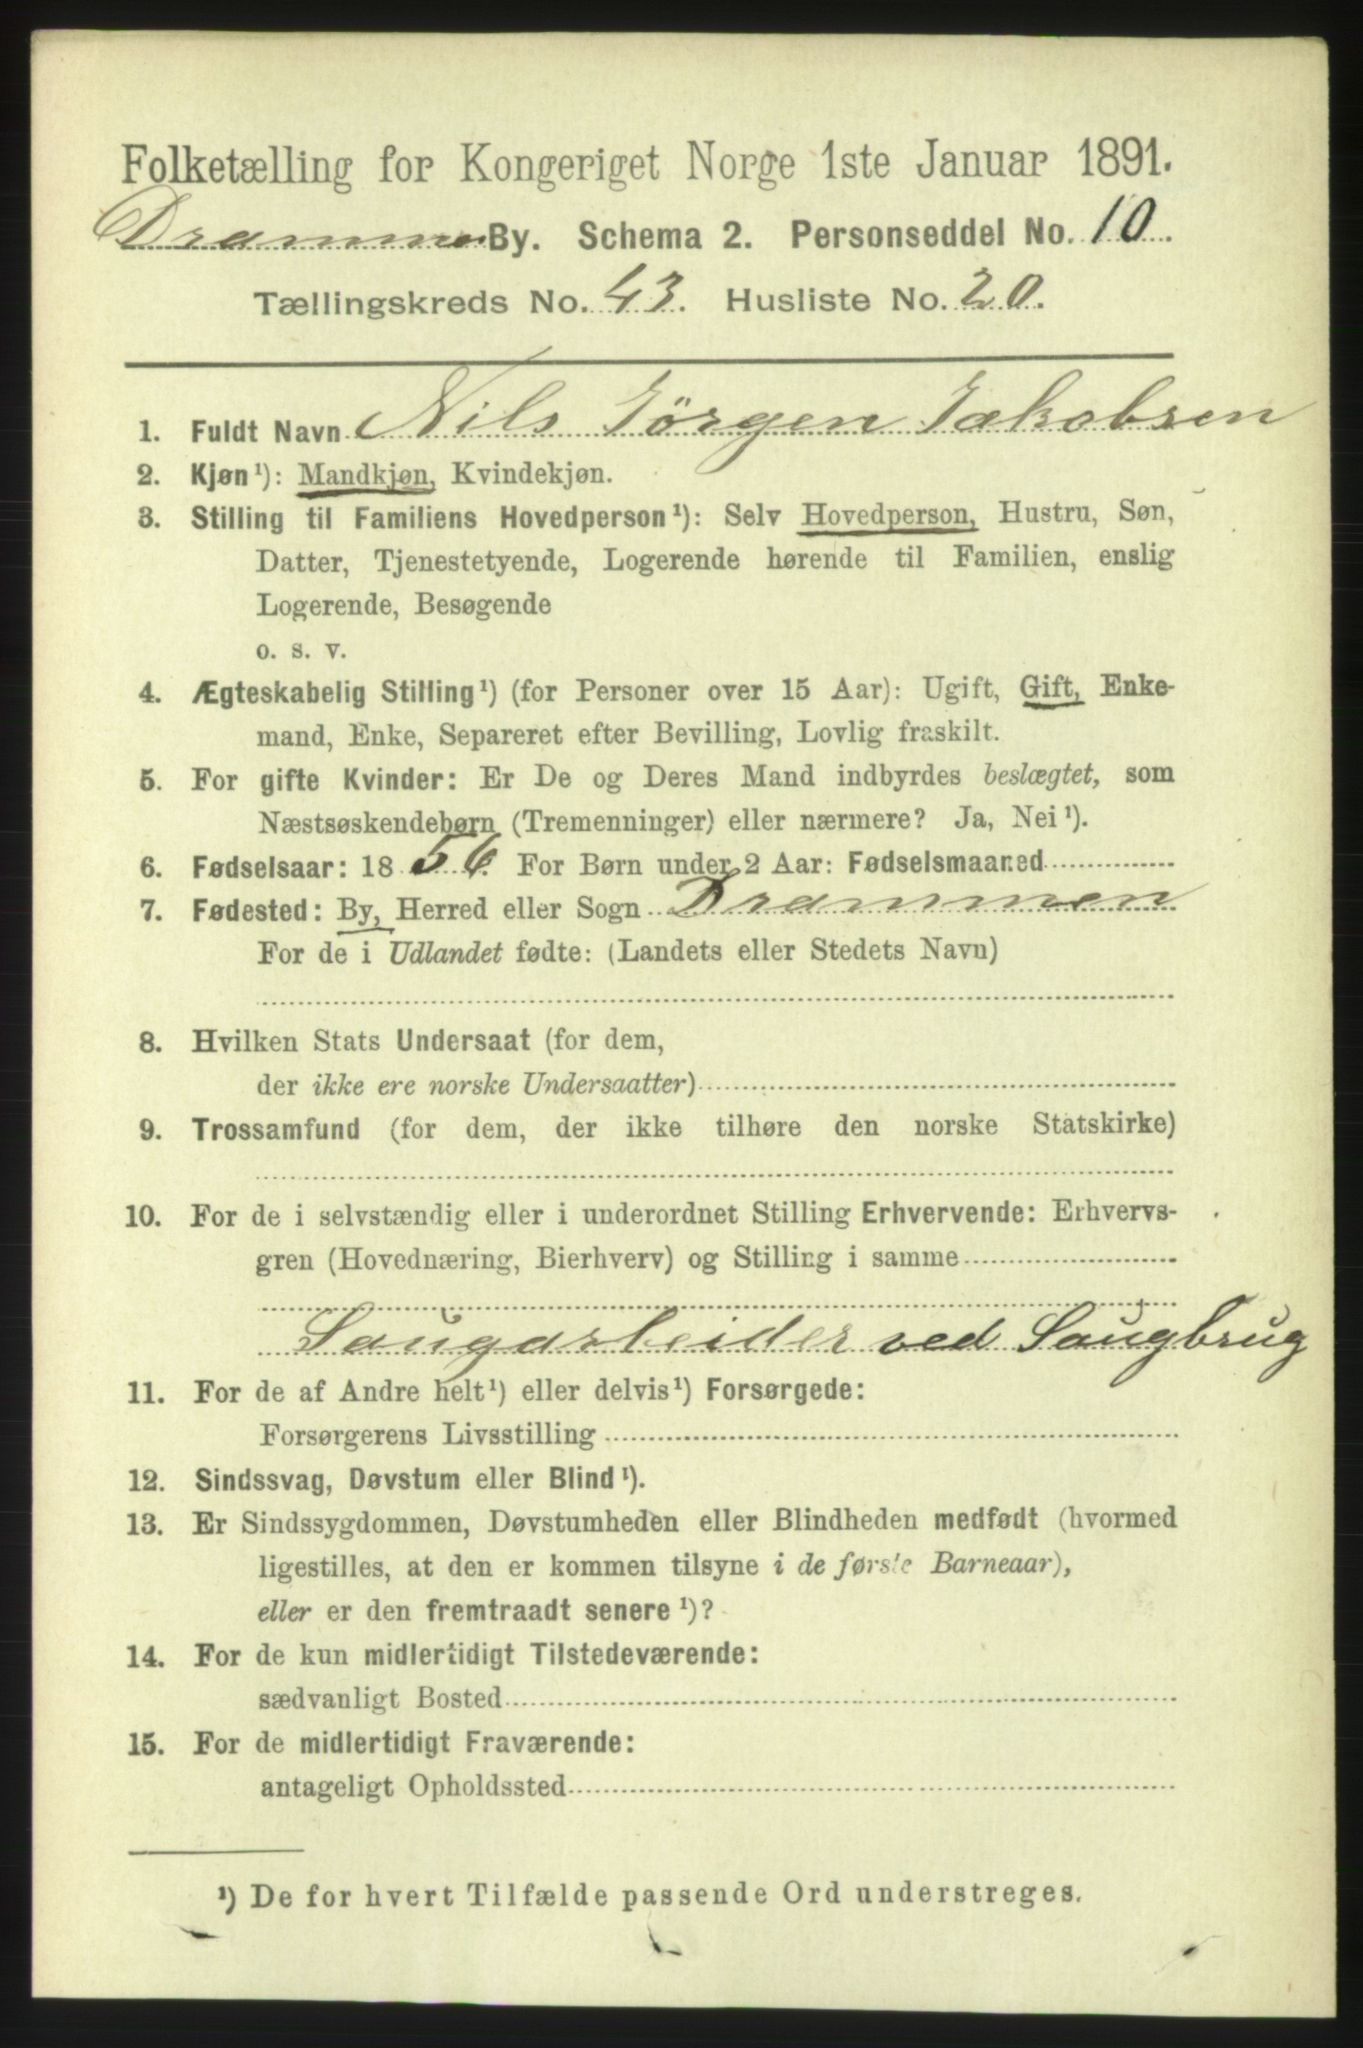 Folketælling for Kongeriget Norge 1ste Januar 1891.
Drammen By. Schema 2. Personseddel No. 10.
Tællingskreds No. 43. Husliste No. 20.
1. Fuldt Navn Nils Jørgen Jakobsen
2. Kjøn¹): Mandkjøn, Kvindekjøn.
3. Stilling til Familiens Hovedperson¹): Selv Hovedperson, Hustru, Søn,
Datter, Tjenestetyende, Logerende hørende til Familien, enslig
Logerende, Besøgende
o. s. v.
4. Ægteskabelig Stilling¹) (for Personer over 15 Aar): Ugift, Gift, Enke-
mand, Enke, Separeret efter Bevilling, Lovlig fraskilt.
5. For gifte Kvinder: Er De og Deres Mand indbyrdes beslægtet, som
Næstsøskendebørn (Tremenninger) eller nærmere? Ja, Nei¹).
6. Fødselsaar: 1856. For Børn under 2 Aar: Fødselsmaaned
7. Fødested: By, Herred eller Sogn Drammen
For de i Udlandet fødte: (Landets eller Stedets Navn)
8. Hvilken Stats Undersaat (for dem,
der ikke ere norske Undersaatter)
9. Trossamfund (for dem, der ikke tilhøre den norske Statskirke)
10. For de i selvstændig eller i underordnet Stilling Erhvervende: Erhvervs-
gren (Hovednæring, Bierhverv) og Stilling i samme
Saugarbeider ved Saugbrug
11. For de af Andre helt¹) eller delvis¹) Forsørgede:
Forsørgerens Livsstilling
12. Sindssvag, Døvstum eller Blind¹).
13. Er Sindssygdommen, Døvstumheden eller Blindheden medfødt (hvormed
ligestilles, at den er kommen tilsyne i de første Barneaar),
eller er den fremtraadt senere¹)?
14. For de kun midlertidigt Tilstedeværende:
sædvanligt Bosted
15. For de midlertidigt Fraværende:
antageligt Opholdssted
¹) De for hvert Tilfælde passende Ord understreges.